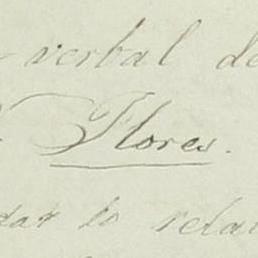 verbal de
Flores.
dar lo relat